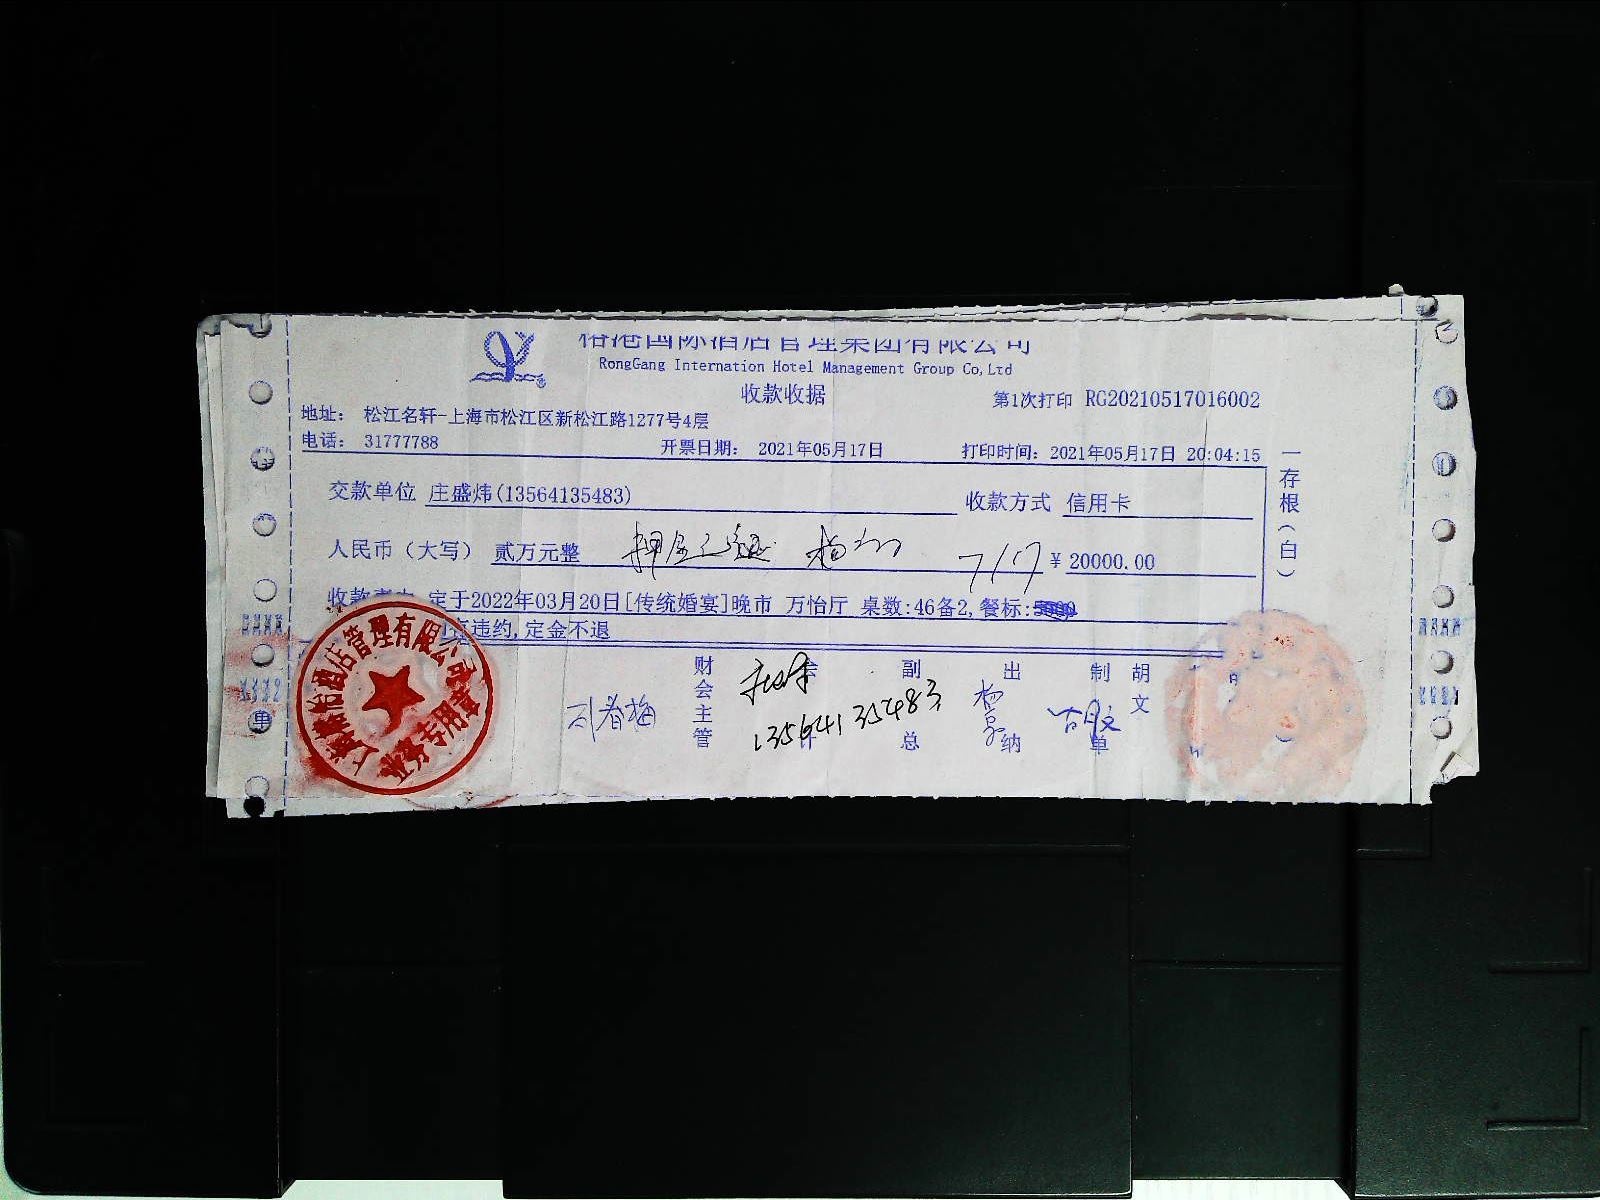 格港国际酒店管理集团有限公司
RongGang Internation Hotel Management Group Co,Ltd
收款收据
第1次打印 RG20210517016002
地址： 松江名轩-上海市松江区新松江路1277号4层
电话： 31777788 开票日期： 2021年05月17日 打印时间：2021年05月17日 20:04:15
交款单位 庄盛炜(13564135483) 收款方式 信用卡
人民币（大写） 贰万元整 押金已退 7/17 ¥ 20000.00
收款 定于2022年03月20日[传统婚宴]晚市 万怡厅 桌数:46备2,餐标:
违约,定金不退
财会主管 刘春梅
13564135483
副总
出纳
制单 胡文
胡文
一存根（白）
酒店管理有限公司
业务专用章
单